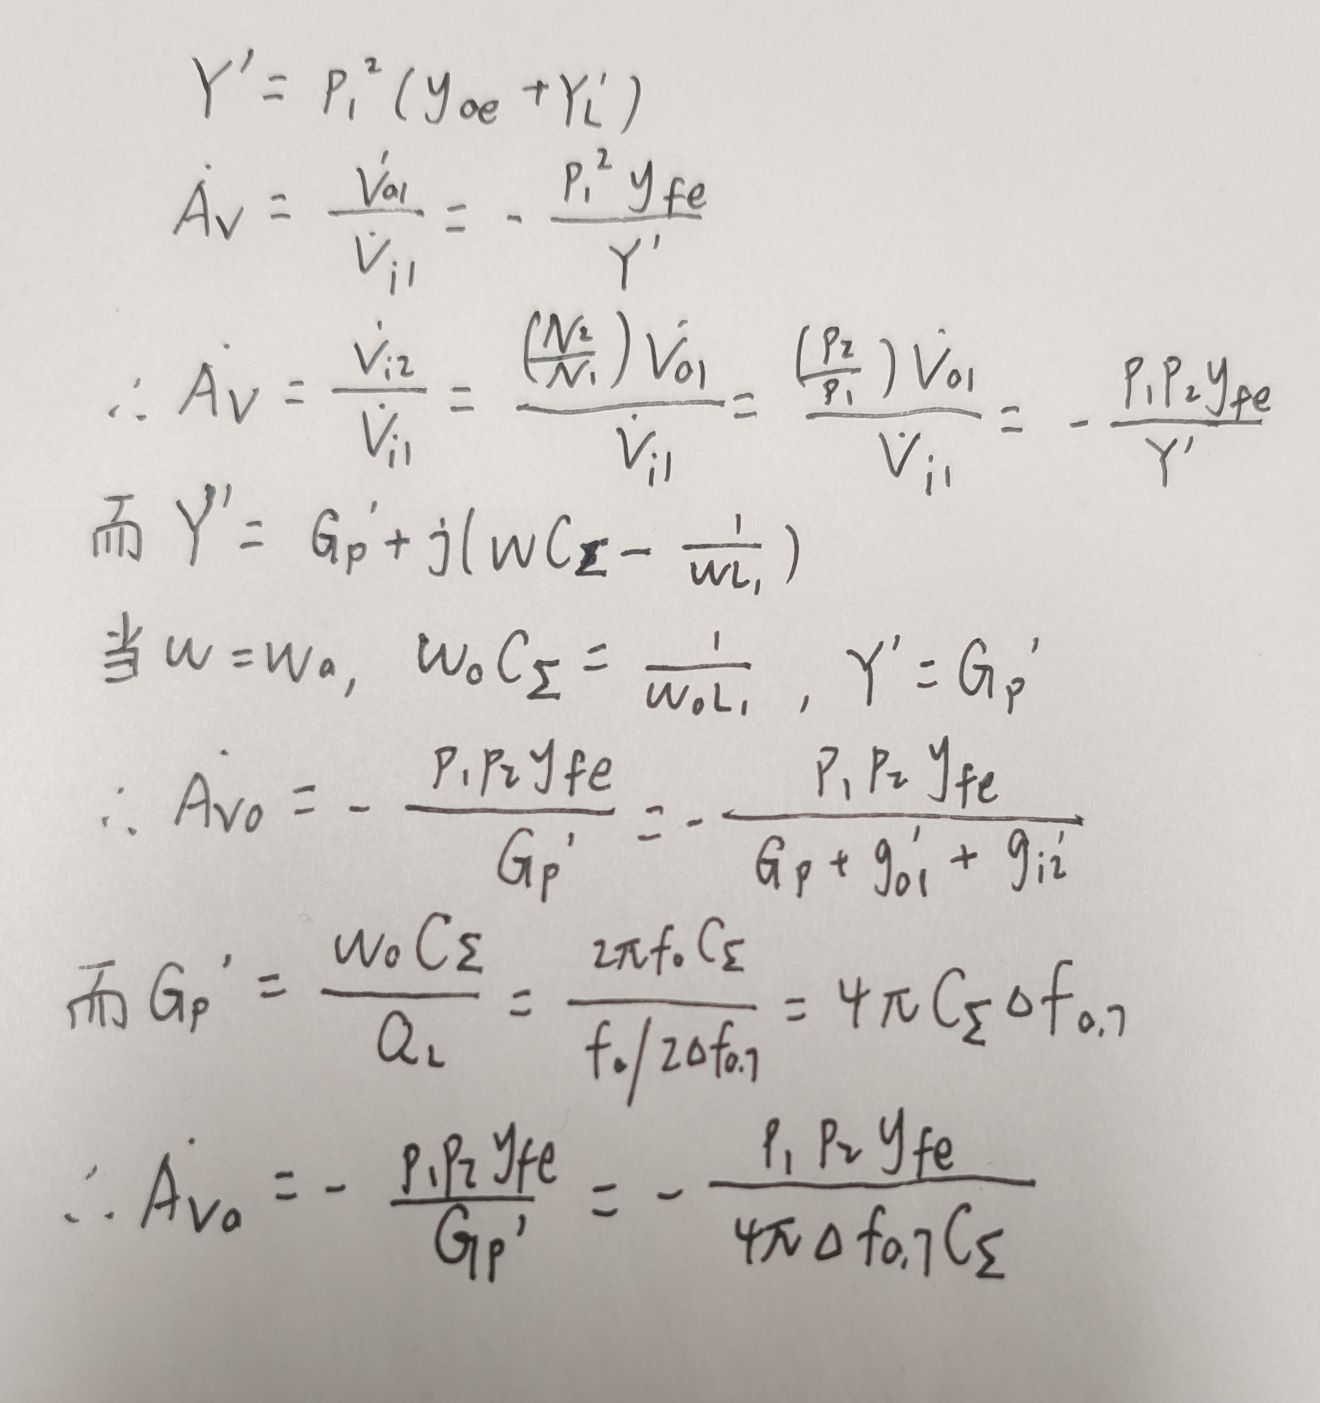 Y' = P₁²(y_oe + Y_L')
Ȧ_V = V̇₀₁ / V̇_i1 = - P₁² y_fe / Y'
∴ Ȧ_V = V̇_i2 / V̇_i1 = (N₂/N₁) V̇₀₁ / V̇_i1 = (P₂/P₁) V̇₀₁ / V̇_i1 = - P₁P₂y_fe / Y'
而 Y' = G_p' + j(wC_Σ - 1/(wL₁))
当 w = w₀, w₀C_Σ = 1/(w₀L₁), Y' = G_p'
∴ Ȧ_V0 = - P₁P₂y_fe / G_p' = - P₁P₂y_fe / (G_p + g₀₁' + g_i2')
而 G_p' = w₀C_Σ / Q_L = 2πf₀C_Σ / (f₀/2Δf₀.₇) = 4πC_ΣΔf₀.₇
∴ Ȧ_V0 = - P₁P₂y_fe / G_p' = - P₁P₂y_fe / (4πΔf₀.₇C_Σ)